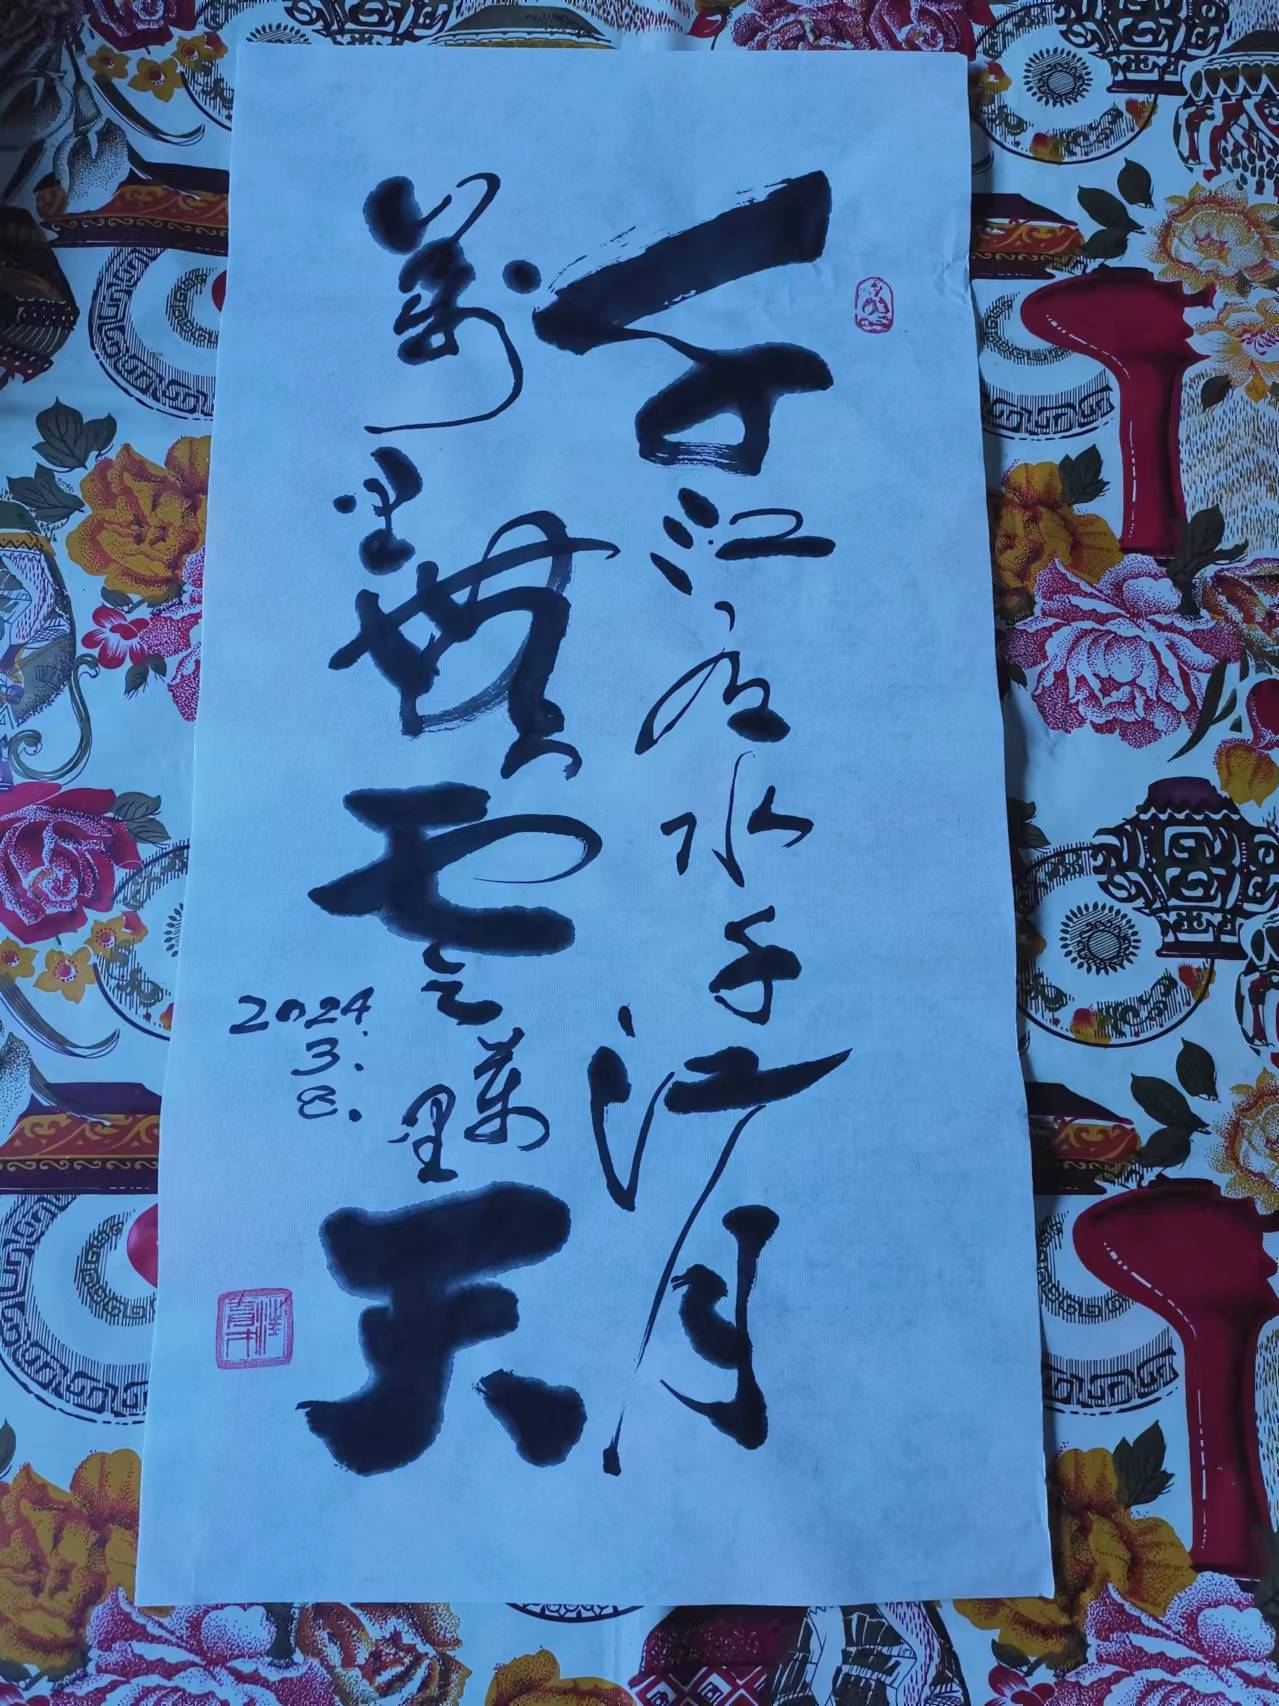 千江有水千江月
萬里無雲萬里天
2024.
3.
8.